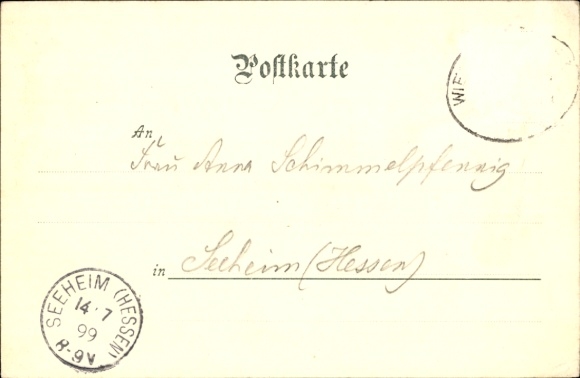 Postkarte
WIE
An
Frau Anna Schimmelpfennig
in Seeheim (Hessen)
SEEHEIM (HESSEN)
14.7
99
8-9V